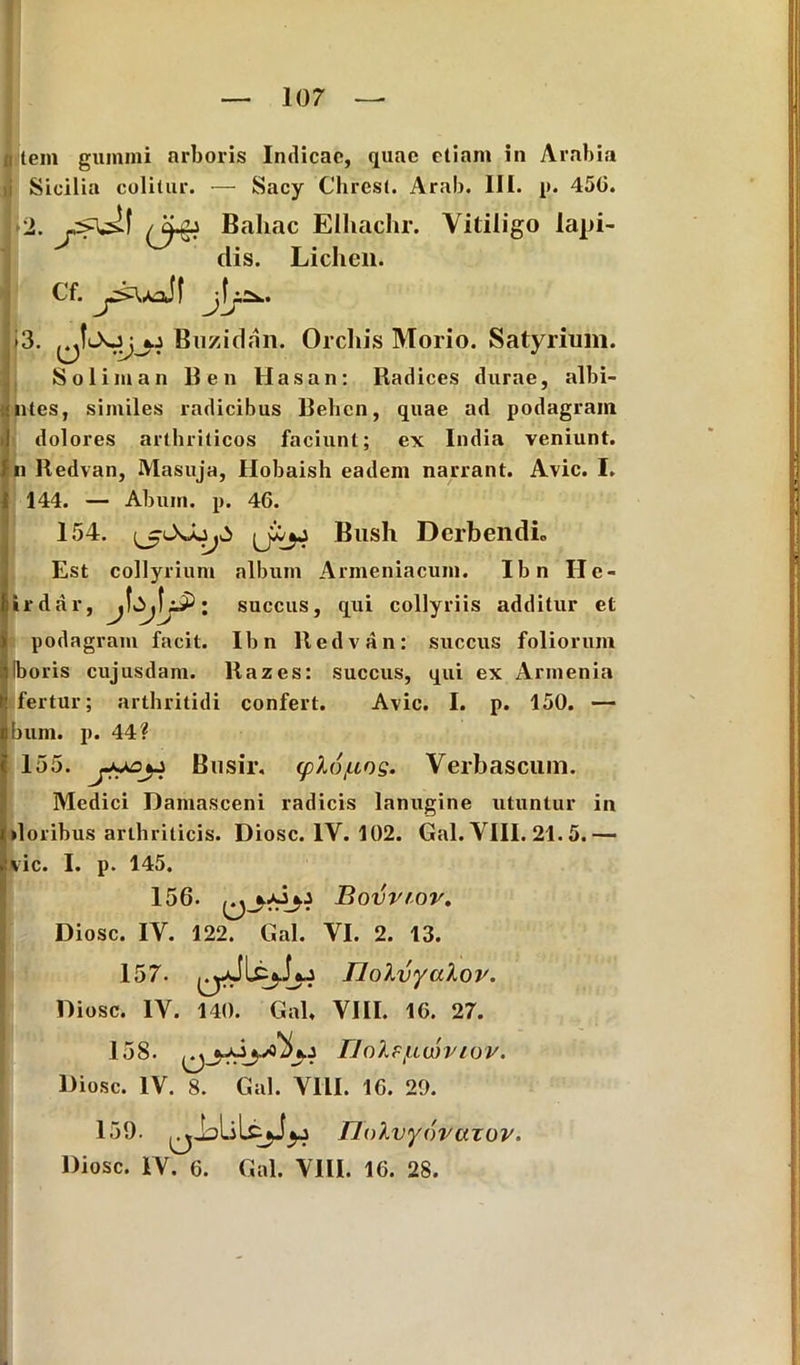 — 107 —
tem gummi arboris Indicae, quae etiam in Arabia
Sicilia colitur. — Sacy Chrest. Arab. III. p. 456.
2. بهق الحجر Bahac Elhachr. Vitiligo lapi-
dis. Lichen.
Cf. حزاز الصخر
3. بوزيدان Buzidân. Orchis Morio. Satyrium.
Soliman Ben Hasan: Radices durae, albi-
ntes, similes radicibus Behen, quae ad podagram
dolores arthriticos faciunt; ex India veniunt.
n Redvan, Masuja, Hobaish eadem narrant. Avic. I.
144. — Abum. p. 46.
154. بوش دربندى Bush Derbendi.
Est collyrium album Armeniacum. Ibn He-
irdâr, هزارذار: succus, qui collyriis additur et
podagram facit. Ibn Redvân: succus foliorum
boris cujusdam. Razes: succus, qui ex Armenia
fertur; arthritidi confert. Avic. I. p. 150. —
bum. p. 44?
155. بوصير Busir. φλόμος. Verbascum.
Medici Damasceni radicis lanugine utuntur in
loribus arthriticis. Diosc. IV. 102. Gal. VIII. 21. 5. —
vic. I. p. 145.
156. بونيون Βούνιον.
Diosc. IV. 122. Gal. VI. 2. 13.
157. بولوغالين Πολύγαλον.
Diosc. IV. 140. Gal. VIII. 16. 27.
158. بولامونيون Πολεμώνιον.
Diosc. IV. 8. Gal. VIII. 16. 29.
159. بولوغاناطن Πολυγόνατον.
Diosc. IV. 6. Gal. VIII. 16. 28.